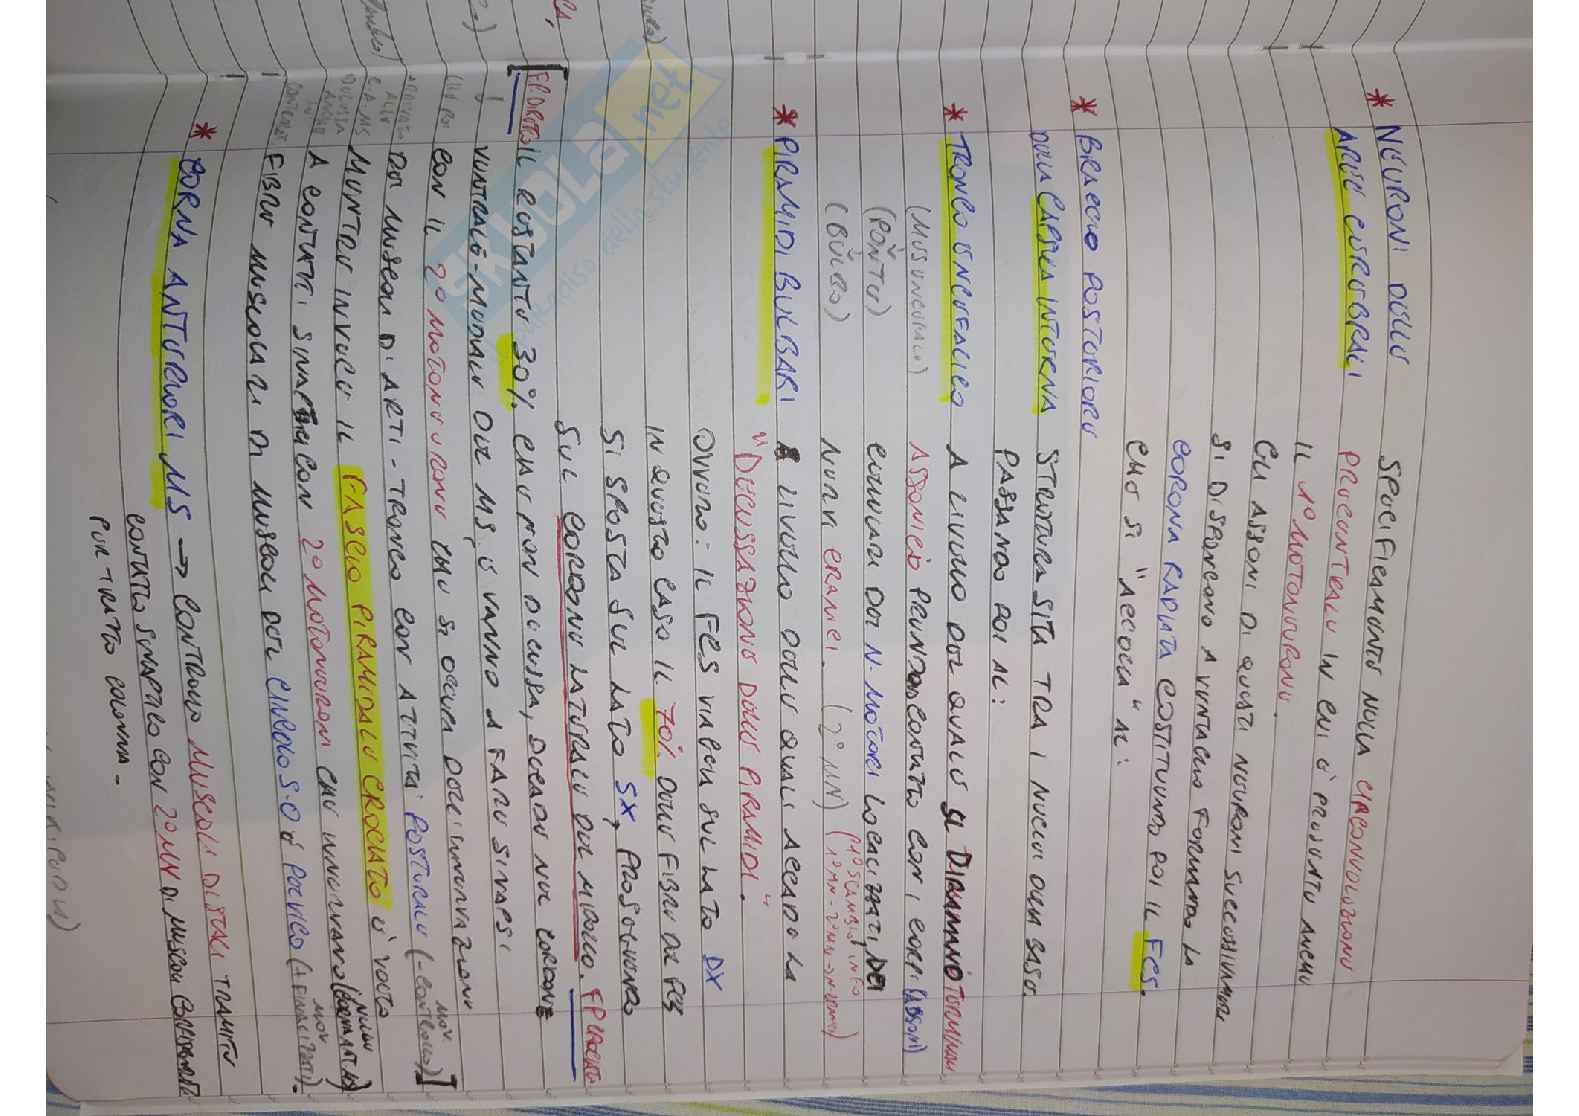 * NEURONI DELLE SPECIFICAMENTE NELLA CIRCONVOLUZIONE
AREE CEREBRALI PRECENTRALE IN CUI È PRESENTE ANCHE
IL 1° MOTONEURONE.
GLI ASSONI DI QUESTI NEURONI SUCCESSIVAMENTE
SI DISPONGONO A VENTAGLIO FORMANDO LA
CORONA RADIATA COSTITUENDO POI IL FCS.
CHE SI "ACCOLLA" AL:
* BRACCIO POSTERIORE
DELLA CAPSULA INTERNA STRUTTURA SITA TRA I NUCLEI DELLA BASE.
PASSANDO POI AL:
* TRONCO ENCEFALICO A LIVELLO DEL QUALE SI DIRAMANO TERMINANO
(MESENCEFALO) ASSONICI PRENDONO CONTATTO CON I CORPI (ASSONI)
(PONTE) CELLULARI DEI N. MOTORI LOCALIZZATI DEI
(BULBO) NERVI CRANICI. (2° MN) (1° SCAMBIO INFO
* PIRAMIDI BULBARI A LIVELLO DELLE QUALI ACCADE LA
"DECUSSAZIONE DELLE PIRAMIDI".
OVVERO: IL FCS VIAGGIA SUL LATO DX
IN QUESTO CASO IL 70% DELLE FIBRE DEL FCS
SI SPOSTA SUL LATO SX, PROSEGUENDO
SUL CORDONE LATERALE DEL MIDOLLO. FP CROCIATO
[FP. DIRETTO IL RESTANTE 30% CHE NON DECUSSA, SCENDE NEL CORDONE
VENTRALE-MEDIALE DEL MS, E VANNO A FARE SINAPSI
CON IL 2° MOTONEURONE CHE SI OCCUPA DELL'INNERVAZIONE
DEI MUSCOLI DI ARTI - TRONCO CON ATTIVITÀ POSTURALE (- MOV CONTROLLO)]
MENTRE INVECE IL FASCIO PIRAMIDALE CROCIATO È VOLTO
A CONTATTI SINAPTICI CON 2° MOTONEURONI CHE INNERVANO
FIBRE MUSCOLARI DI MUSCOLI DEL CINGOLO S-O E PELVICO (+ MOV FINALIZZATI).
* CORNA ANTERIORI MS → CONTROLLO MUSCOLI DISTALI TRAMITE
CONTATTO SINAPTICO CON 2° MN DI MUSCOLI
PER TRATTO COLONNA.
SKUOLA.net